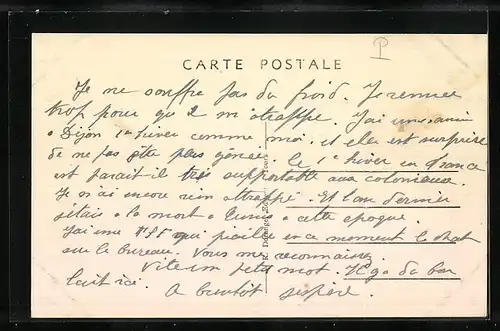 CARTE POSTALE
Je ne souffre pas du froid. Je remue
trop pour qu'il m'attrappe. J'ai une amie
à Dijon 1er hiver comme moi. et elle est surprise
de ne pas être plus génée. Le 1er hiver en France
est parait il très supportable aux coloniaux.
Je n'ai encore rien attrappé. Et l'an dernier
j'étais à la mort à Tunis à cette époque.
J'ai une qui piaille en ce moment le chat
sur le bureau. Vous me reconnaissez
Vite un petit mot. Il go da bon
lait ici. A bientôt j'espère.